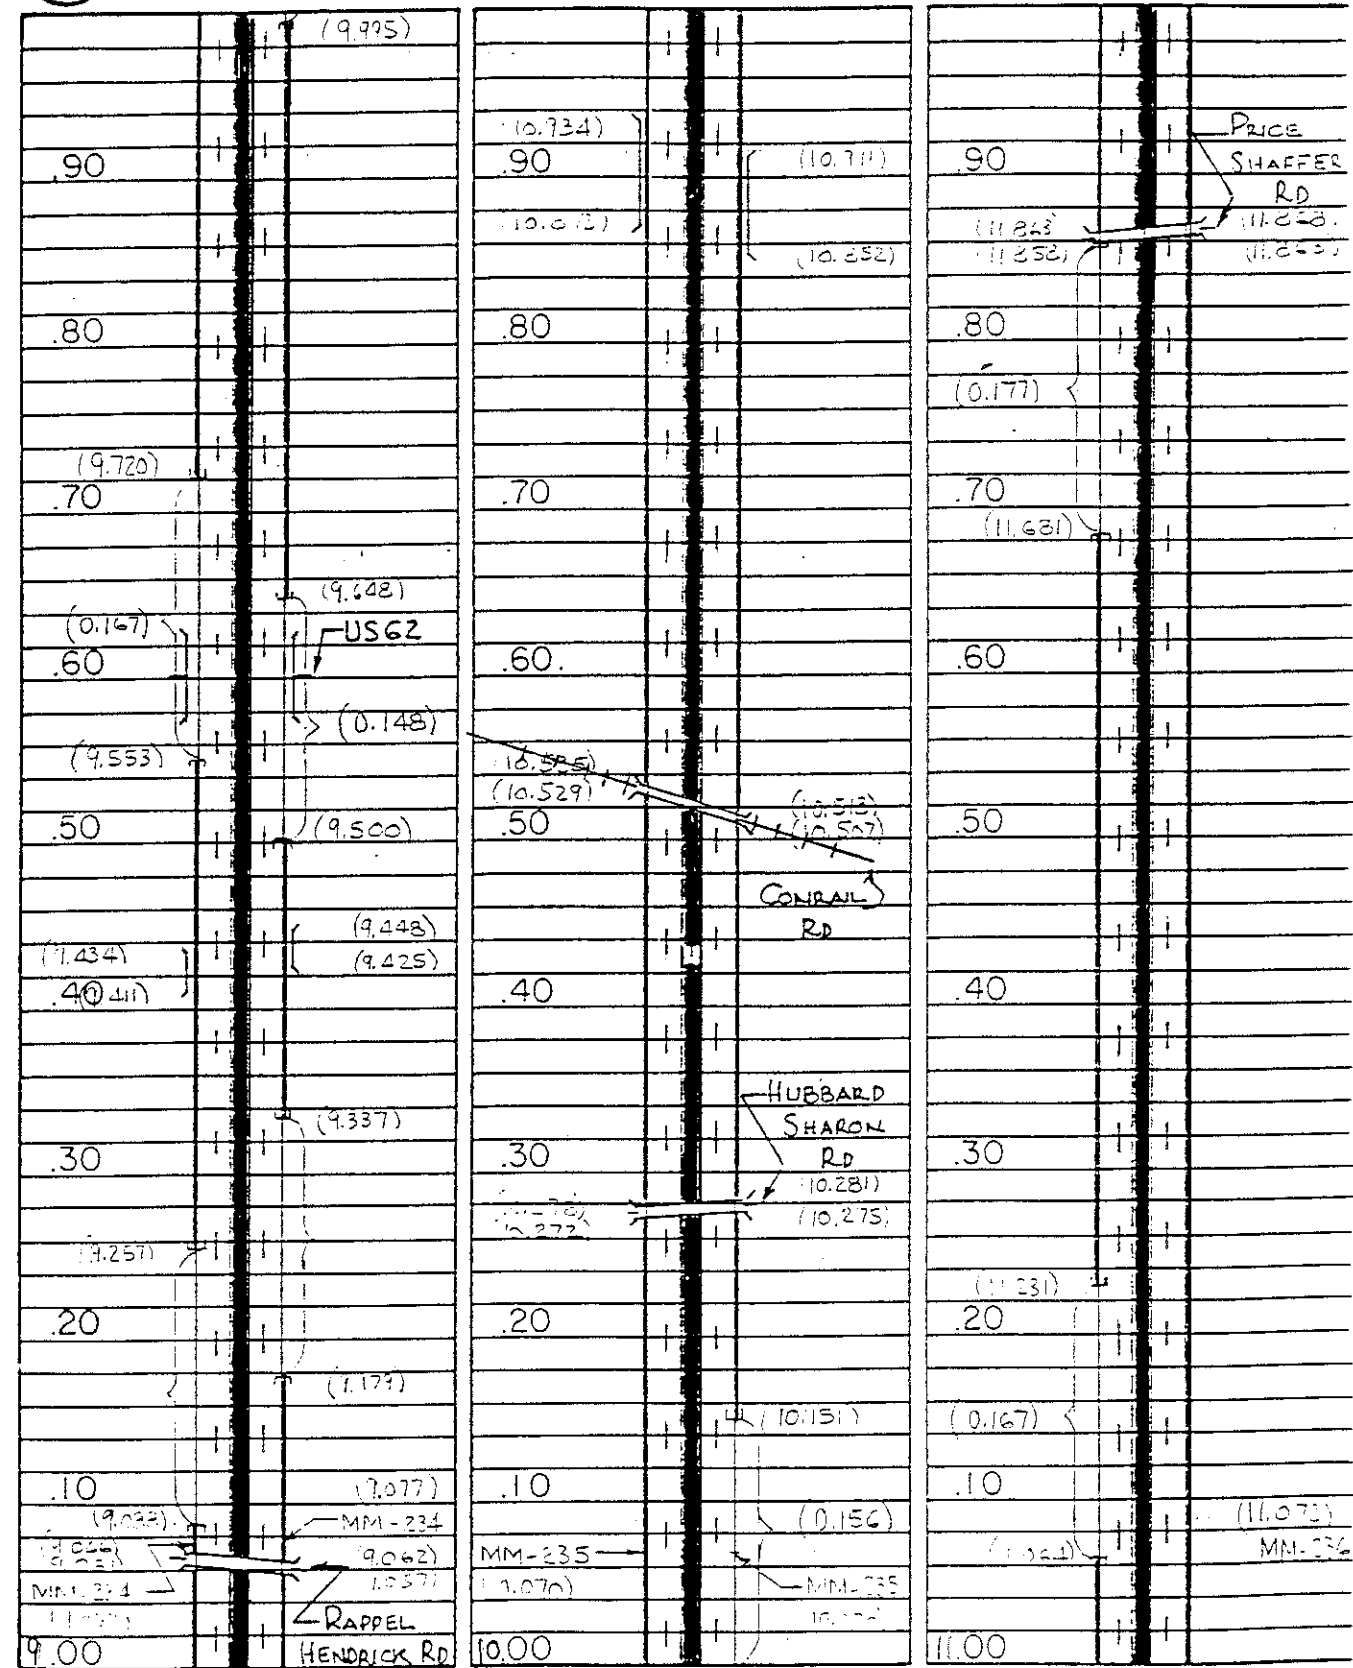 (9.995)
.90
.80
(9.720)
.70
(9.648)
(0.167)
US62
.60
(0.148)
(9.553)
.50
(9.500)
(9.448)
(9.434)
(9.425)
.40
(9.337)
.30
(9.257)
.20
(9.179)
.10
(9.077)
MM-234
(9.062)
MM-234
RAPPEL
HENDRICK RD
9.00
(10.934)
.90
(10.852)
.80
.70
.60.
(10.529)
(10.513)
.50
(10.507)
CONRAIL
RD
.40
HUBBARD
SHARON
RD
.30
(10.281)
(10.275)
.20
(10.151)
.10
(0.156)
MM-235
MM-235
10.00
PRICE
.90
SHAFFER
RD
(11.863
(11.858)
(11.863)
.80
(0.177)
.70
(11.681)
.60
.50
.40
.30
(11.231)
.20
(0.167)
.10
(11.073)
MM-236
11.00